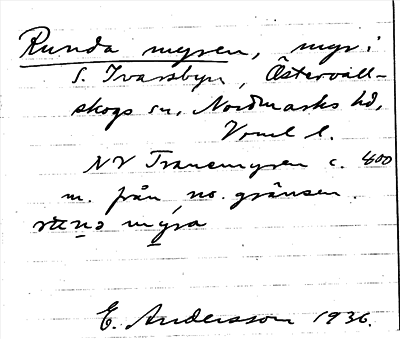 Runda myren, myr i
S. Ivarsbyn, Östervall-
skogs sn, Nordmarks hd,
Vrml l.
NV Tranemyren c. 400
m. från no. gränsen.
myra
E. Andersson 1936.